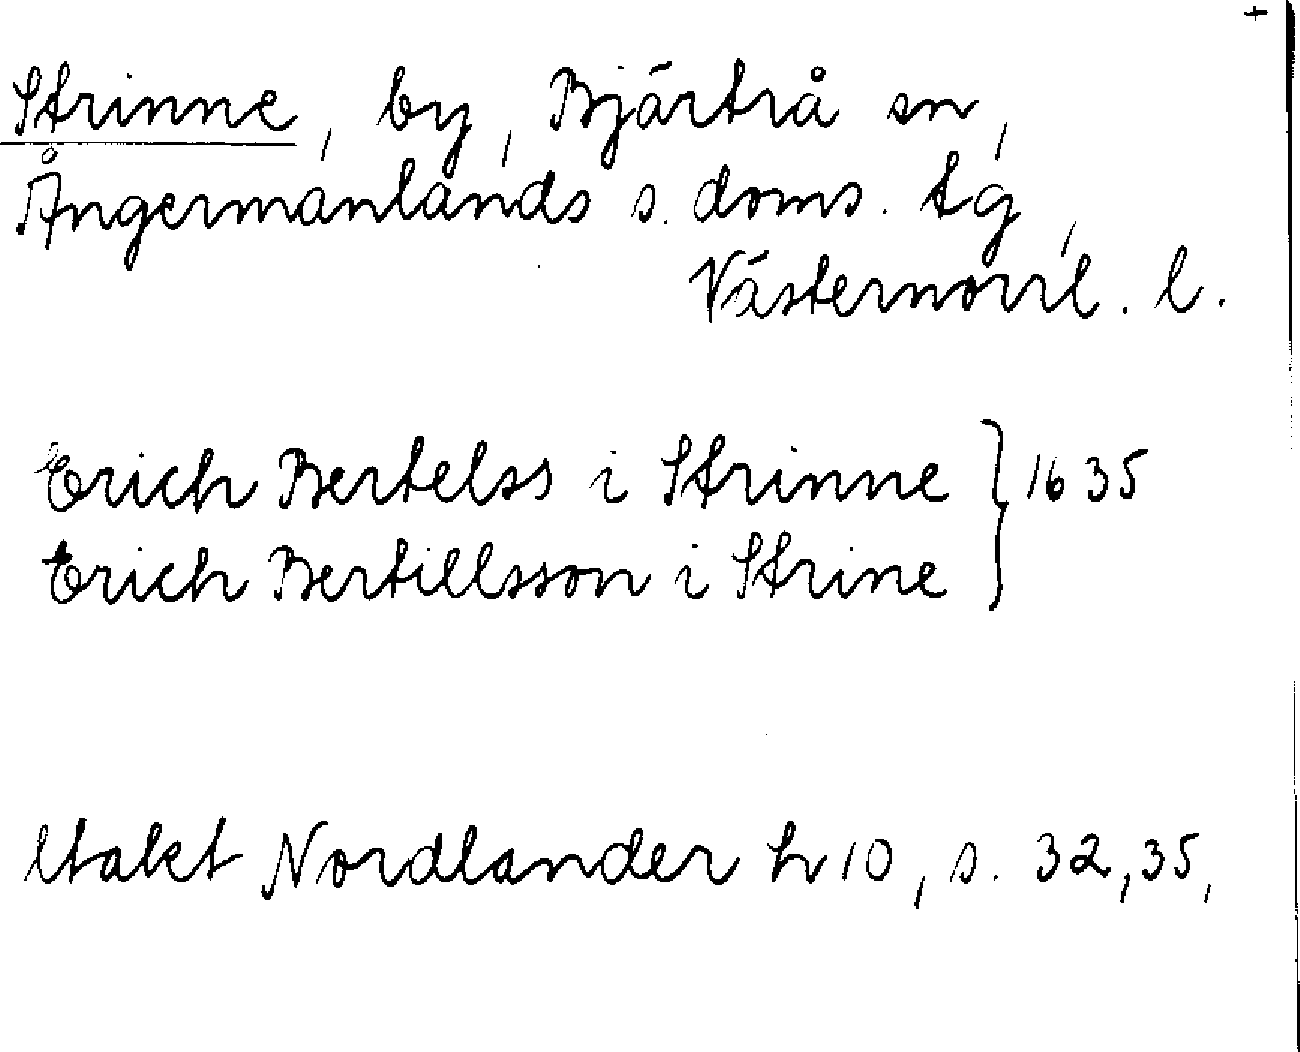 +
Strinne, by, Bjärtrå sn,
Ångermanlands s. doms. tg,
Västernorrl. l.
Erich Bertelss i Strinne } 1635
Erich Bertillsson i Strine
Utakt Nordlander h 10, s. 32, 35,